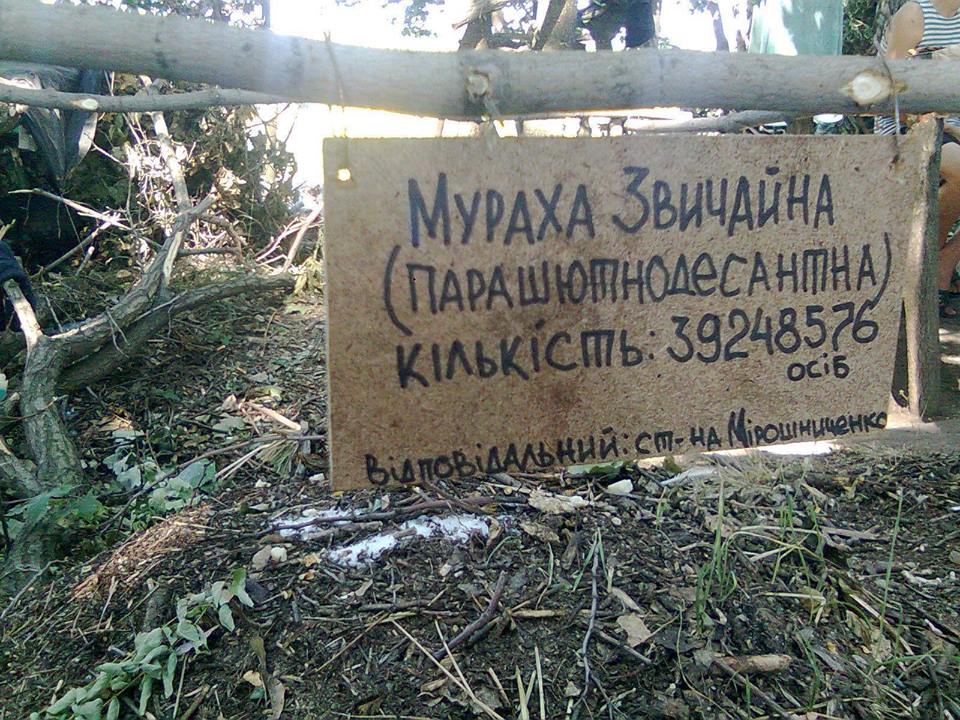 Мураха Звичайна
(парашютнодесантна)
кількість: 39248576
осіб
Відповідальний: ст-на Мірошниченко